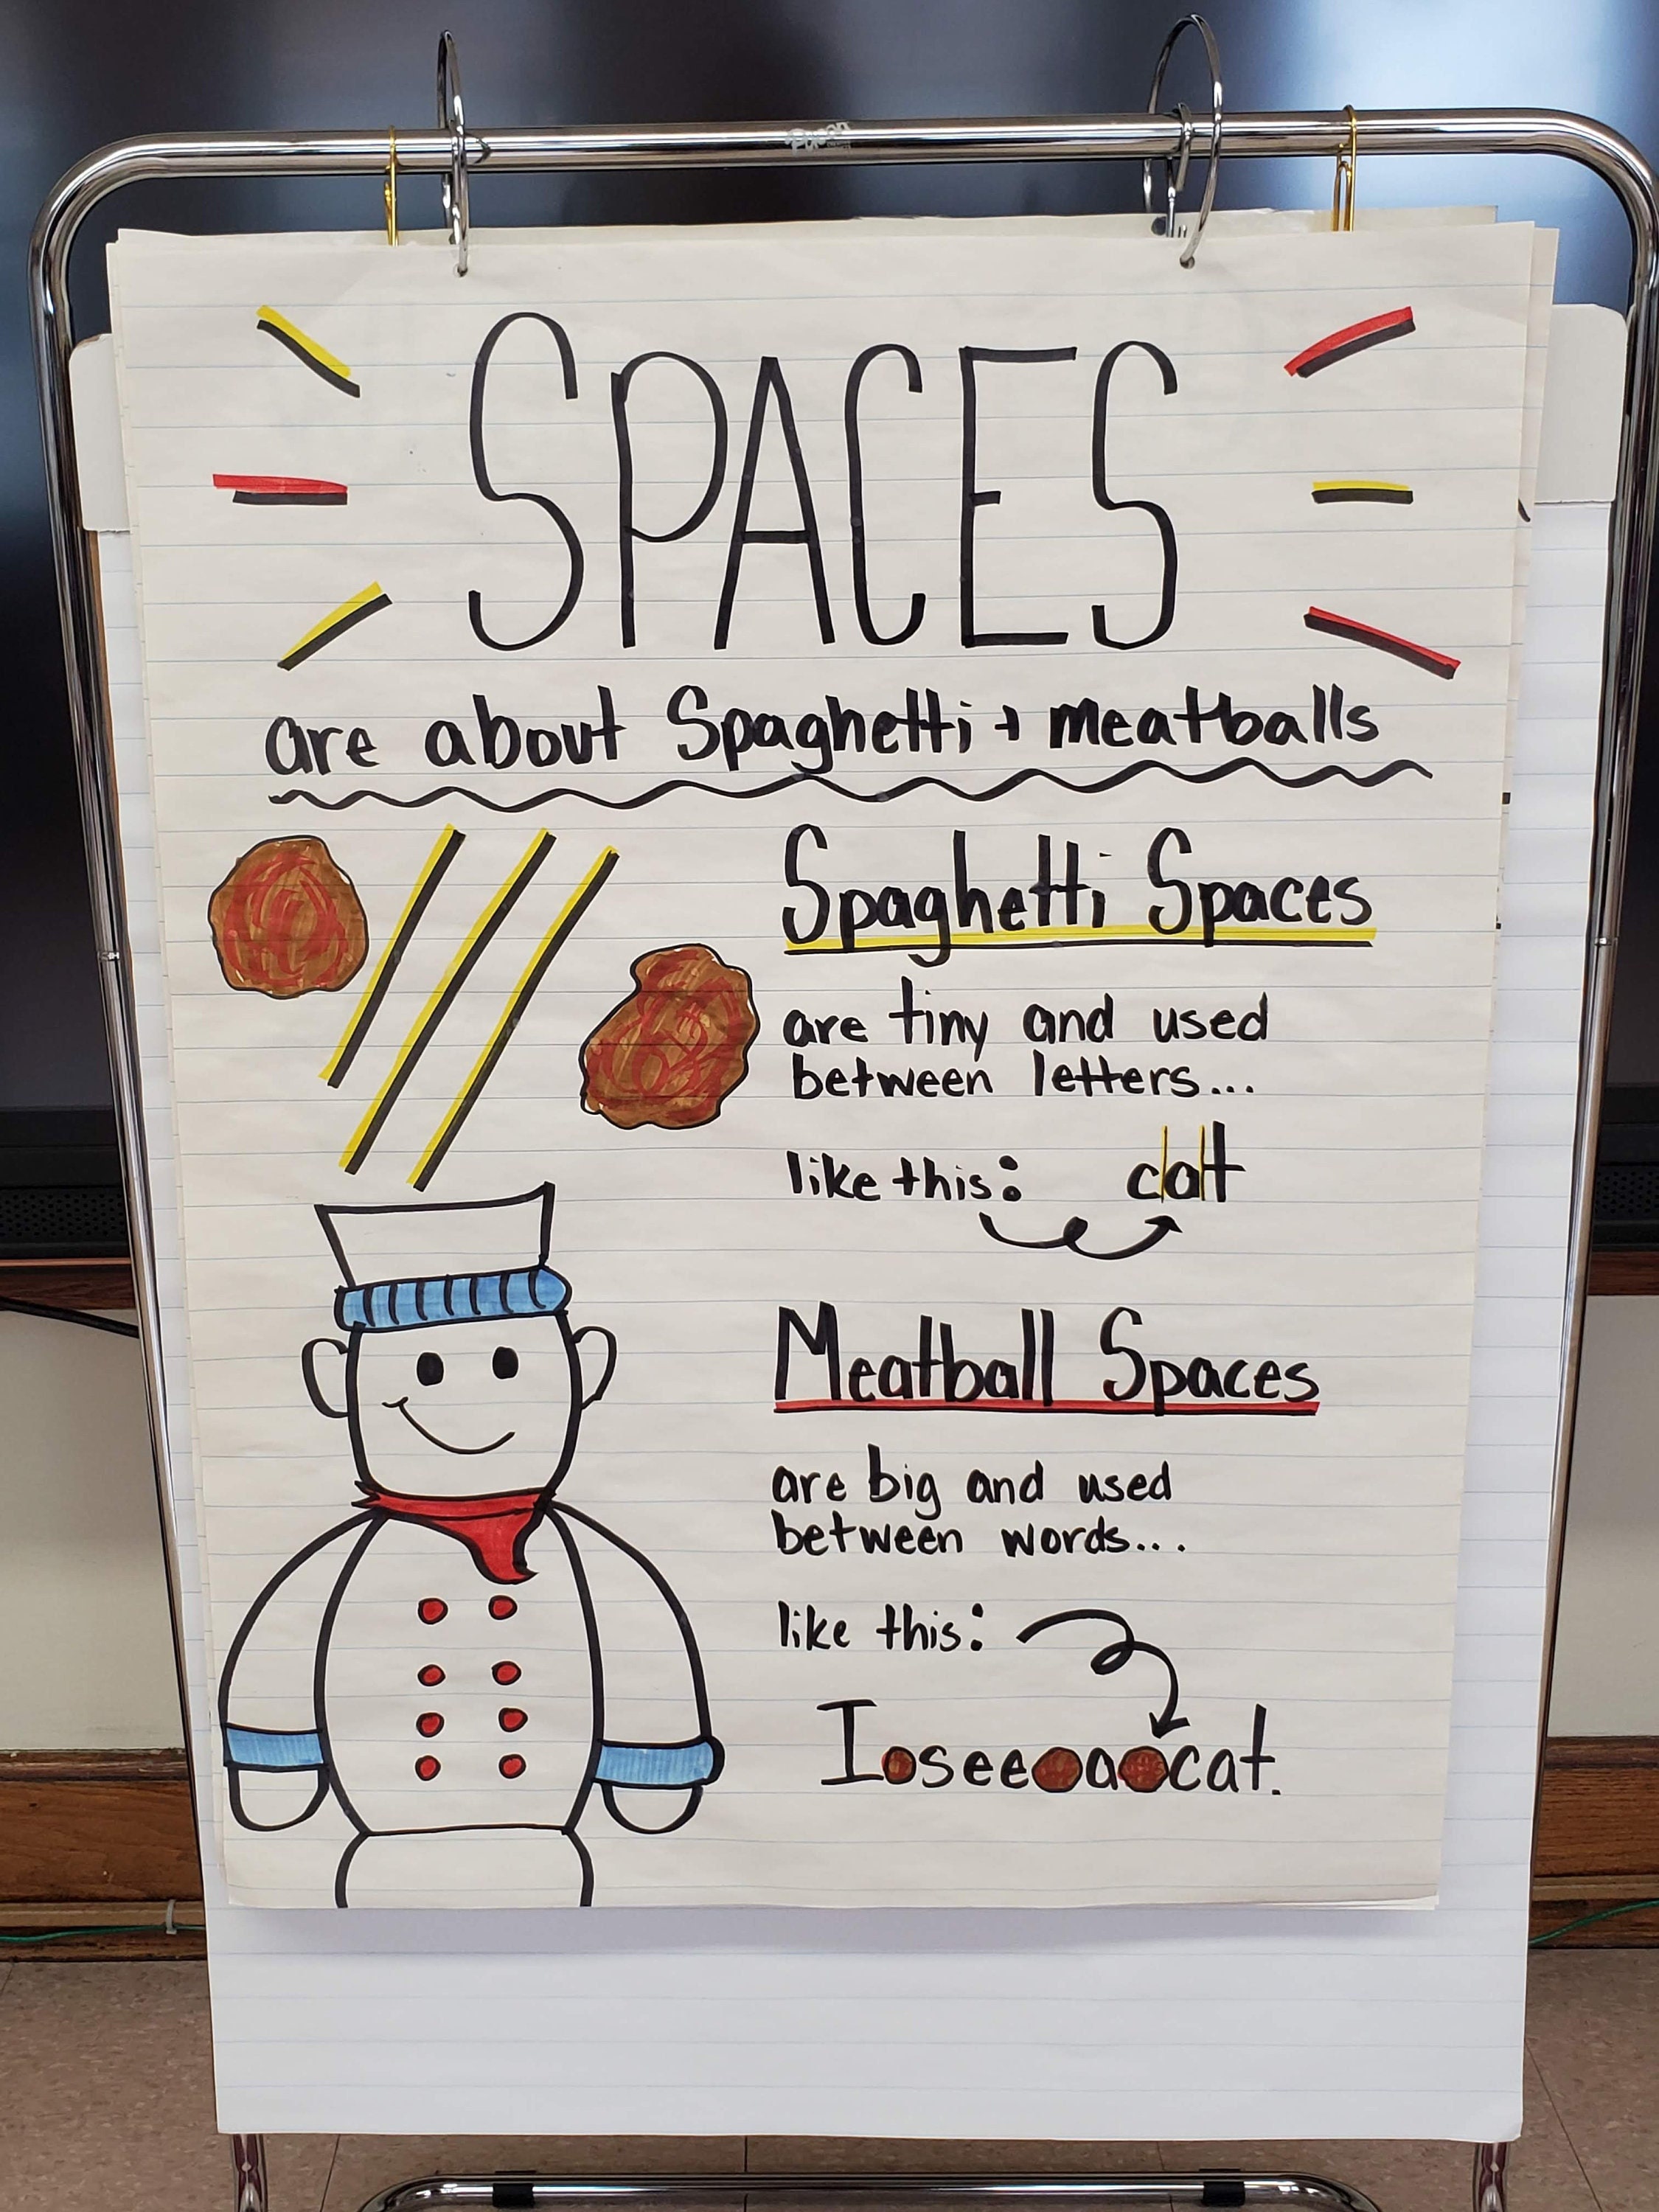 SPACES
are about Spaghetti + meatballs
Spaghetti Spaces
are tiny and used
between letters...
like this: cat
Meatball Spaces
are big and used
between words...
like this:
I see a cat.